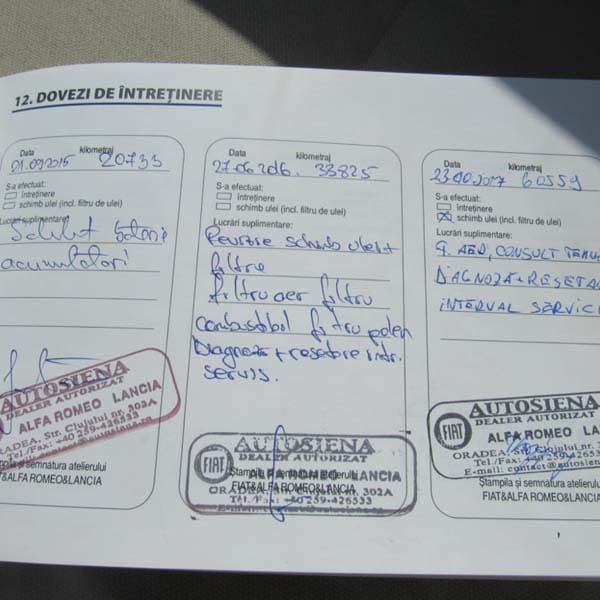 12. DOVEZI DE ÎNTREȚINERE
Data kilometraj
01.09.2015 20733
S-a efectuat:
întreținere
schimb ulei (incl. filtru de ulei)
Lucrări suplimentare:
Schimb baterie
acumulatori
AUTOSIENA
DEALER AUTORIZAT
ALFA ROMEO LANCIA
ORADEA, Str. Clujului nr. 302A
Tel./Fax: +40 259-426533
E-mail: contact@autosiena.ro
Ștampila și semnătura atelierului
FIAT&ALFA ROMEO&LANCIA
Data kilometraj
27.06.2016. 33825
S-a efectuat:
întreținere
schimb ulei (incl. filtru de ulei)
Lucrări suplimentare:
Revizie schimb ulei+
filtre
filtru aer filtru
combustibil filtru polen
Diagnoza + resetare intr.
servis.
AUTOSIENA
DEALER AUTORIZAT
FIAT
ALFA ROMEO LANCIA
Ștampila și semnătura atelierului
FIAT&ALFA ROMEO&LANCIA
ORADEA, Str. Clujului nr. 302A
Tel./Fax: +40 259-426533
Data kilometraj
23.10.2017 60559
S-a efectuat:
întreținere
schimb ulei (incl. filtru de ulei)
Lucrări suplimentare:
CONSULT
DIAGNOZA + RESETA
INTERVAL SERVIC
AUTOSIENA
DEALER AUTORIZAT
FIAT
ALFA ROMEO LAN
ORADEA, Str. Clujului nr.
Tel./Fax: +40 259-426533
E-mail: contact@autosien
Ștampila și semnătura atelierului
FIAT&ALFA ROMEO&LANCIA